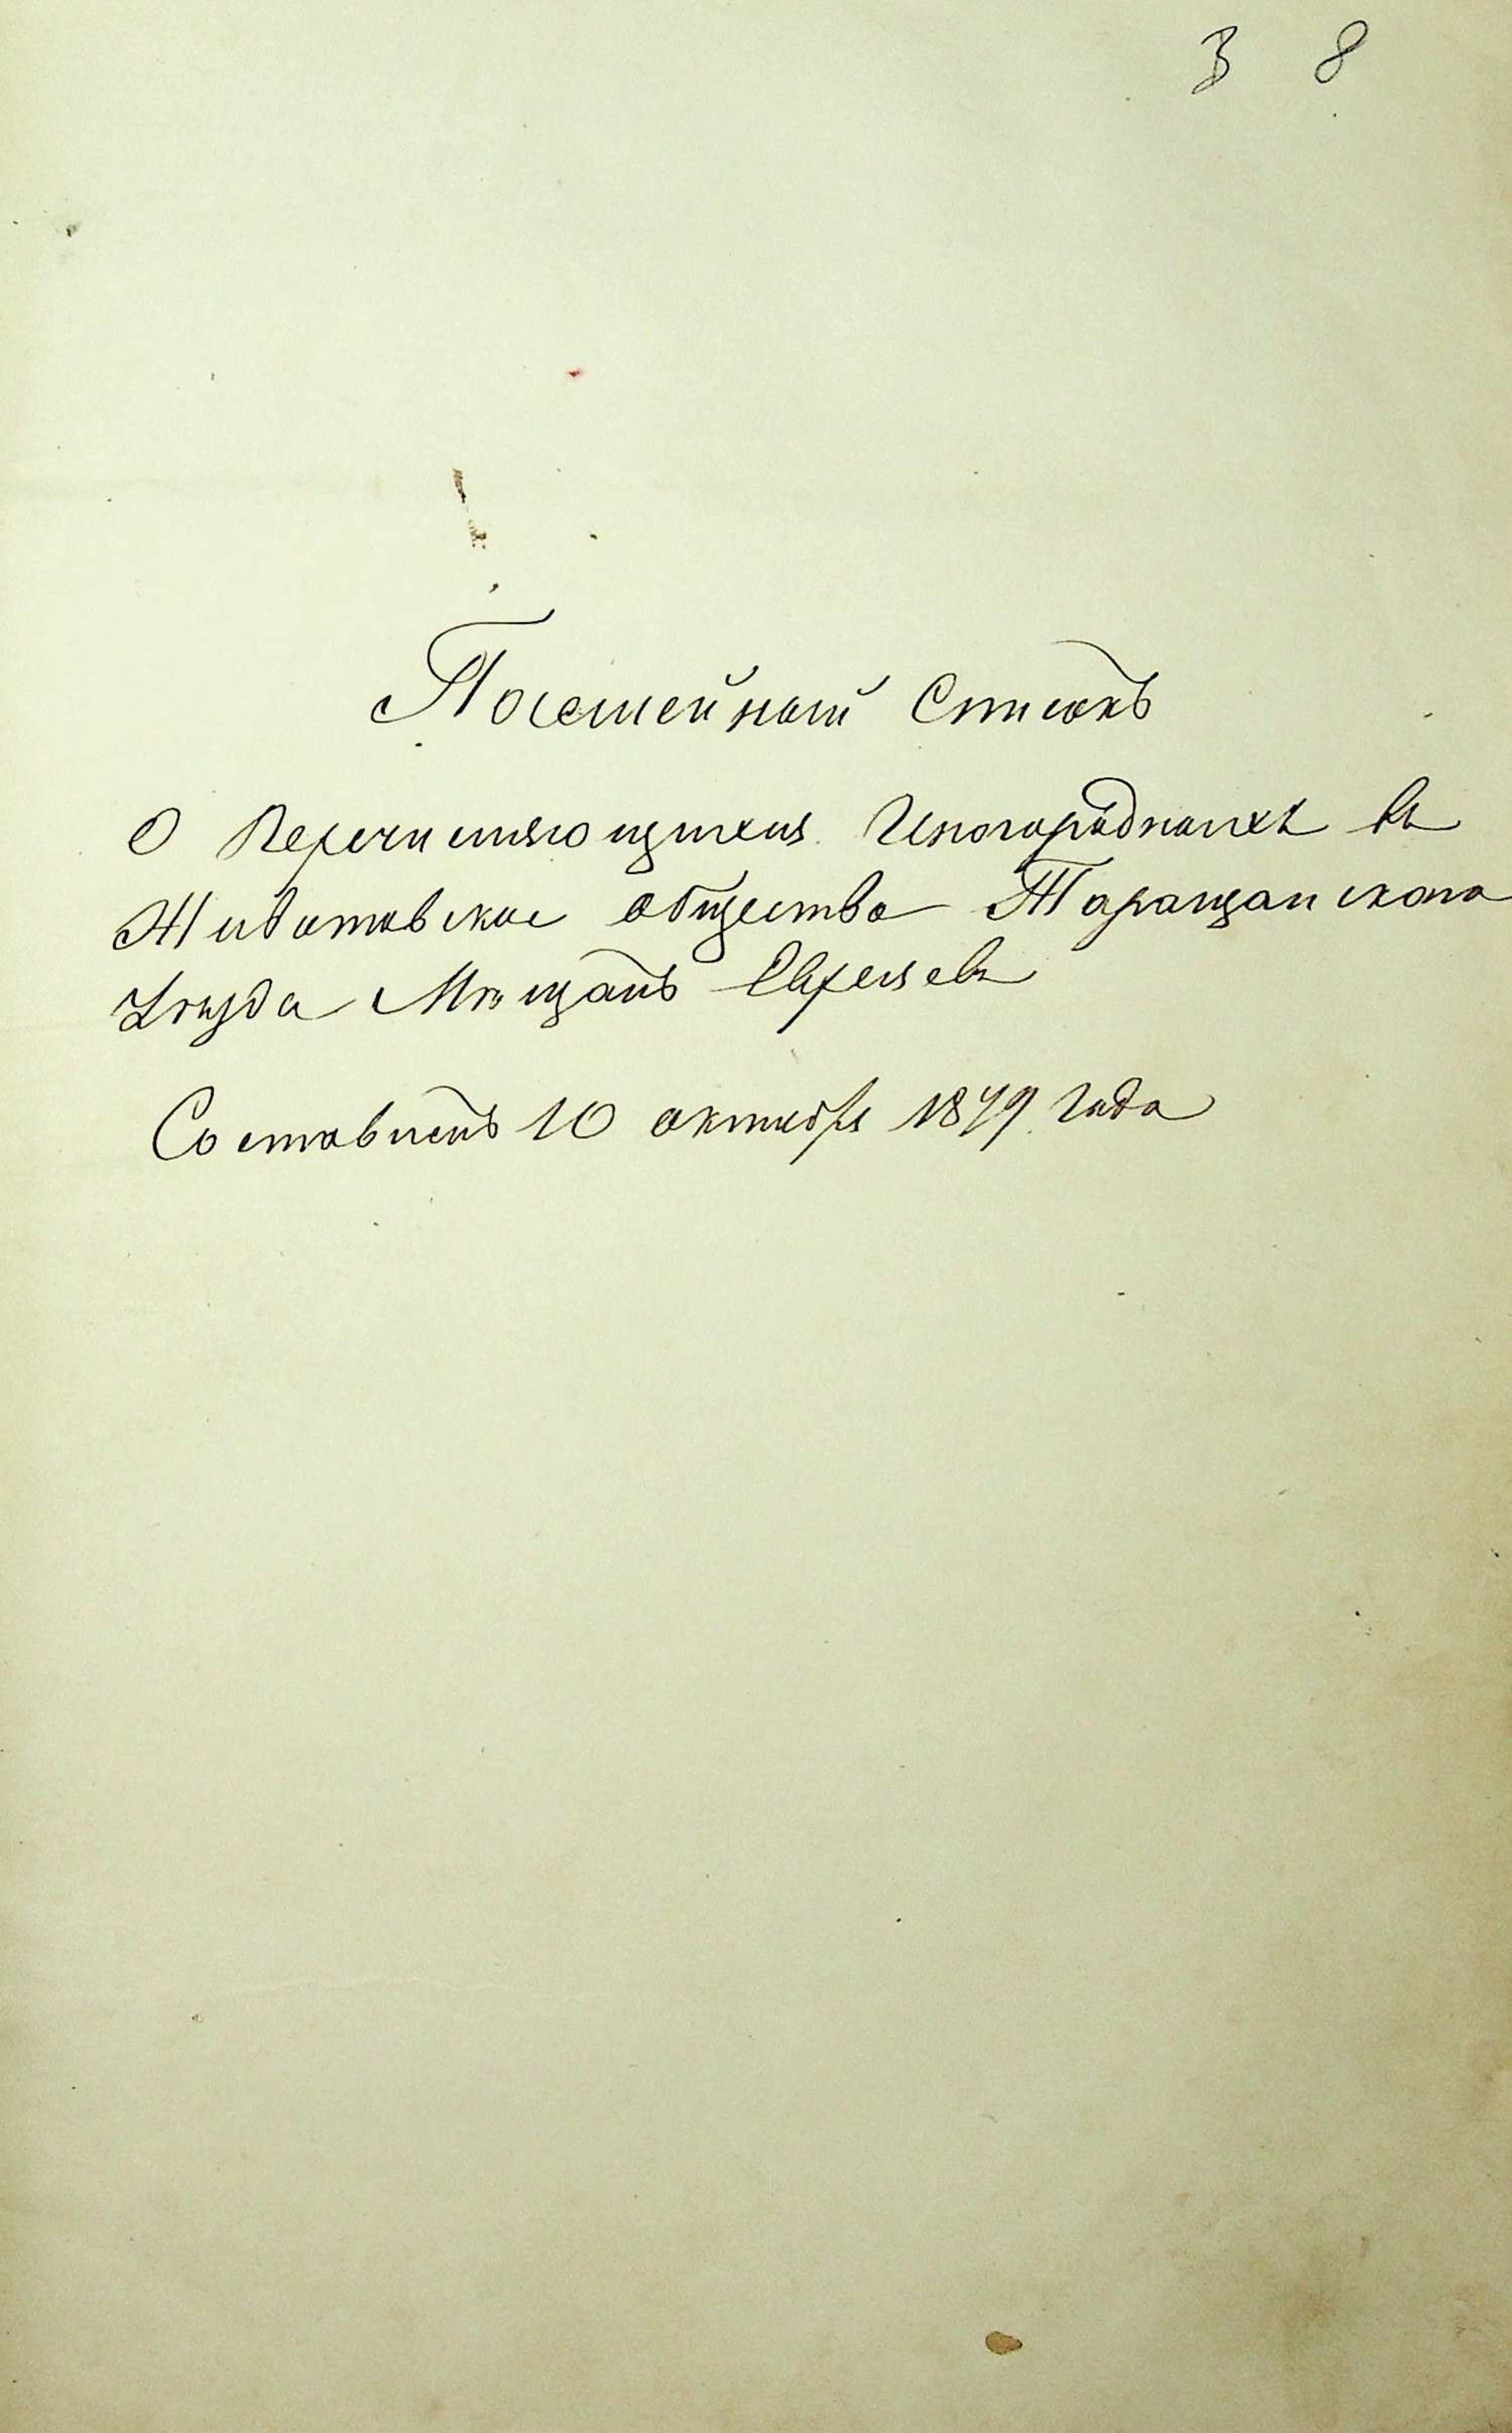 3 8
Посемейный Списокъ
О Перечисляющихся Иногородныхъ въ
Животовское общество Таращанского
Уезда Мещанъ Евреевъ
Составленъ 10 октября 1879 Года